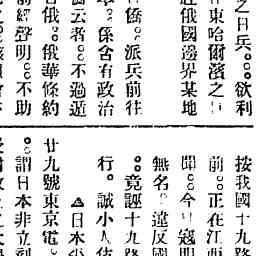 之日兵。。。欲利
在東哈爾濱之
赴俄國邊界某地
。派兵前往
。。係含有政治
云者。。不過遁
俄。。俄華條約
前經聲明。。不助
按我國十九路
前。正在江西
聞。今寇明
無名。違反國
。竟誣十九路
行。誠小人伎
▲日本
廿九號東京電。
。謂日本非立刻